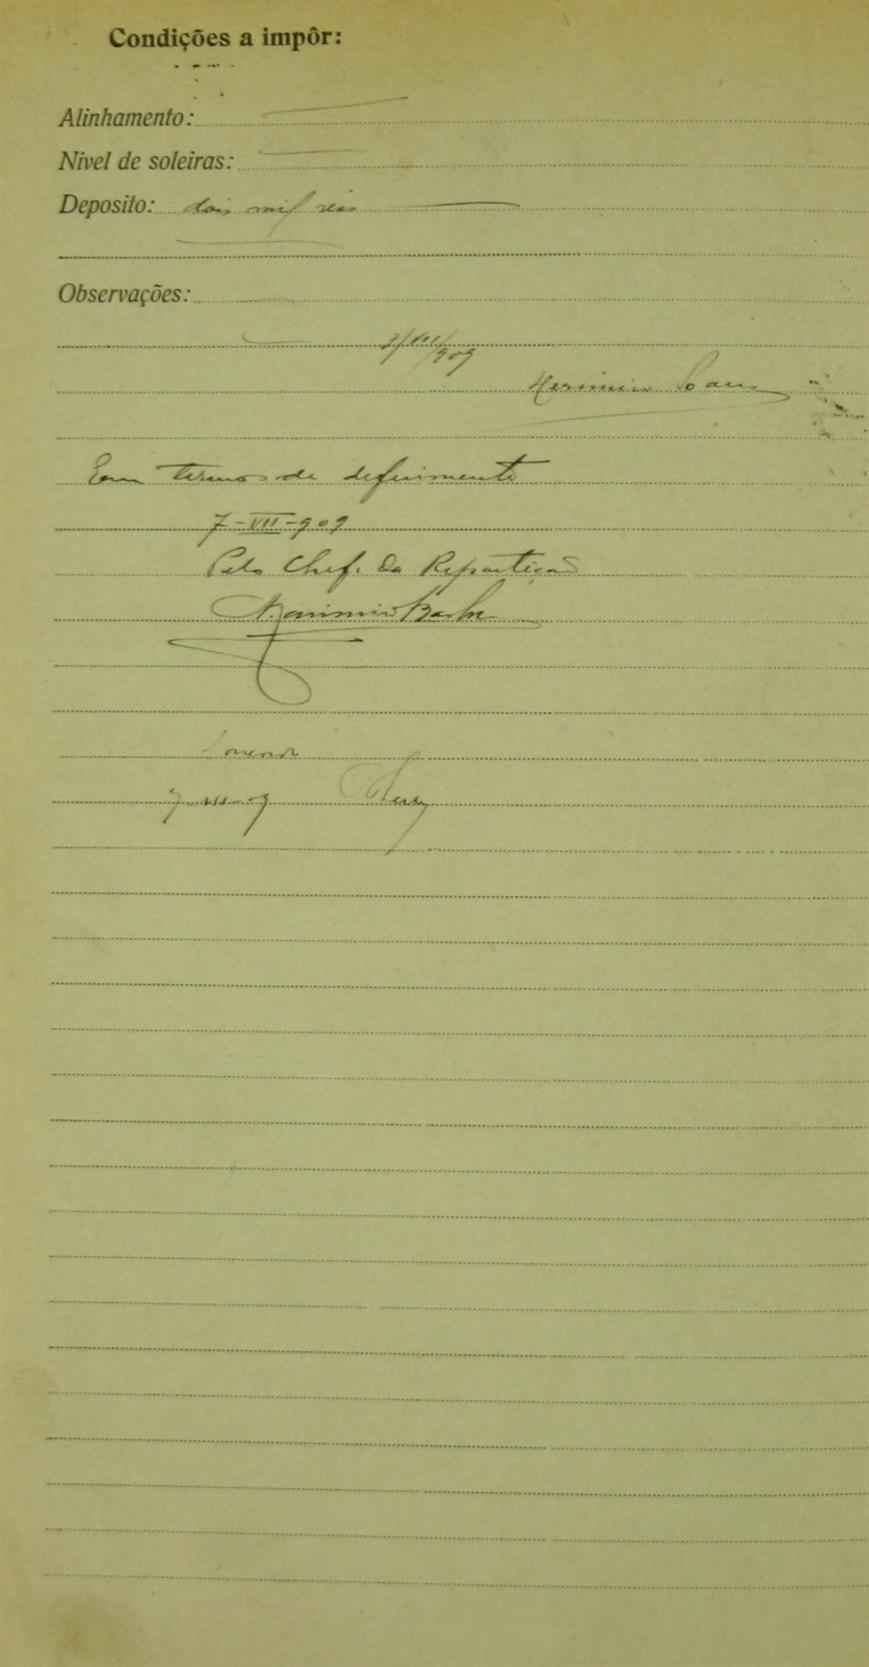 Condições a impôr:
Alinhamento:
Nivel de soleiras:
Deposito: dois mil reis
Observações:
3/VII/909
Em termos de deferimento
7-VII-909
Pelo Chefe da Repartição
7-VII-9